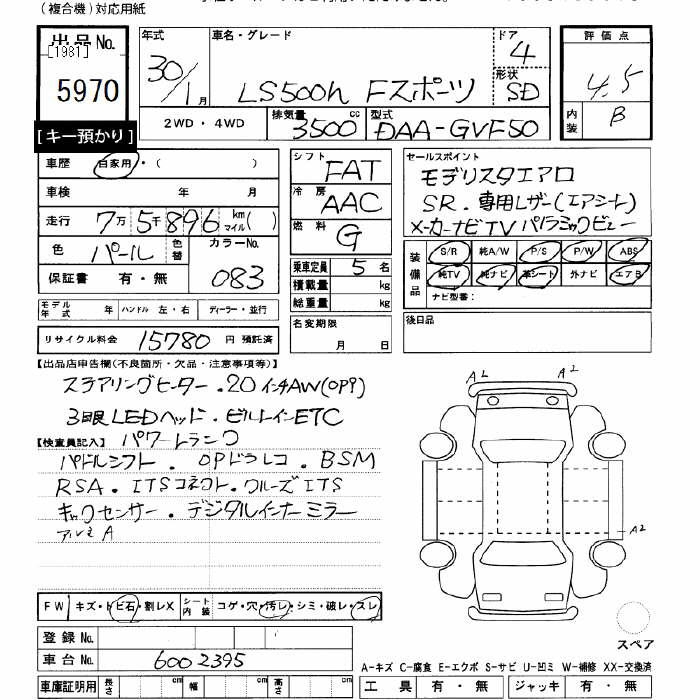 (複合機)対応用紙
出品No.
[1981]
5970
[キー預かり]
年式 30/1月
車名・グレード LS500h Fスポーツ
ドア 4
形状 SD
2WD・4WD
排気量 3500cc
型式 DAA-GVF50
評価点 4.5
内装 B
車歴 自家用・( )
車検 年 月
走行 7万5千896km マイル( )
色 パール 色替 カラーNo. 083
保証書 有・無
モデル年式 年 ハンドル 左・右 ディーラー・並行
リサイクル料金 15780円 預託済
シフト FAT
冷房 AAC
燃料 G
乗車定員 5名
積載量 kg
総重量 kg
名変期限 月 日
セールスポイント
モデリスタエアロ
SR.専用レザー(エアシート)
メーカーナビTV パノラミックビュー
装備品 S/R 純A/W P/S P/W ABS
純TV 純ナビ 革シート 外ナビ エアB
ナビ型番:
後日品
【出品店申告欄(不良箇所・欠品・注意事項等)】
ステアリングヒーター.20インチAW(OP)
3眼LEDヘッド.ビルトインETC
【検査員記入】パワートランク
パドルシフト.OPドラレコ.BSM
RSA.ITSコネクト.クルーズITS
キックセンサー.デジタルインナーミラー
アルミA
A2 A2
A2
スペア
FW キズ・トビ石・割レX シート内装 コゲ・穴・汚レ・シミ・破レ・スレ
登録No.
車台No. 6002395
車庫証明用 長さ cm 幅 cm 高さ cm
A-キズ C-腐食 E-エクボ S-サビ U-凹ミ W-補修 XX-交換済
工具 有・無 ジャッキ 有・無